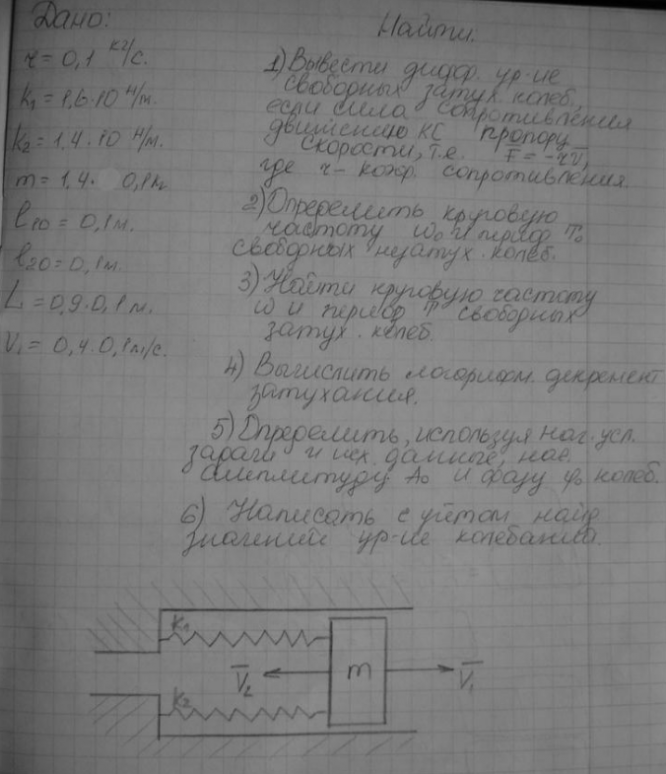 Дано:
r = 0,1 кг/с.
k₁ = 1,6·10 Н/м.
k₂ = 1,4·10 Н/м.
m = 1,4 0,1 кг
l₁₀ = 0,1 м.
l₂₀ = 0,1 м.
L = 0,9·0,1 м.
V₁ = 0,4·0,1 м/с.
Найти:
1) Вывести дифф. ур-ие
свободных затух. колеб.,
если сила сопротивления
движению КС пропорц.
скорости, т.е. F̅ = -rV̅,
где r - коэф. сопротивления.
2) Определить круговую
частоту ω₀ и период T₀
свободных незатух. колеб.
3) Найти круговую частоту
ω и период T свободных
затух. колеб.
4) Вычислить логарифм. декремент
затухания.
5) Определить, используя нач. усл.
задачи и исх. данные, нач.
амплитуду A₀ и фазу φ₀ колеб.
6) Написать с учётом найд
значений ур-ие колебания.
k₁
V̅₂ m V̅₁
k₂